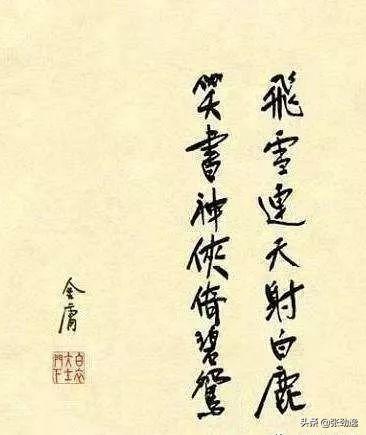 飛雪連天射白鹿
笑書神俠倚碧鴛
金庸
白衣大士門下
头条 @张劲逸